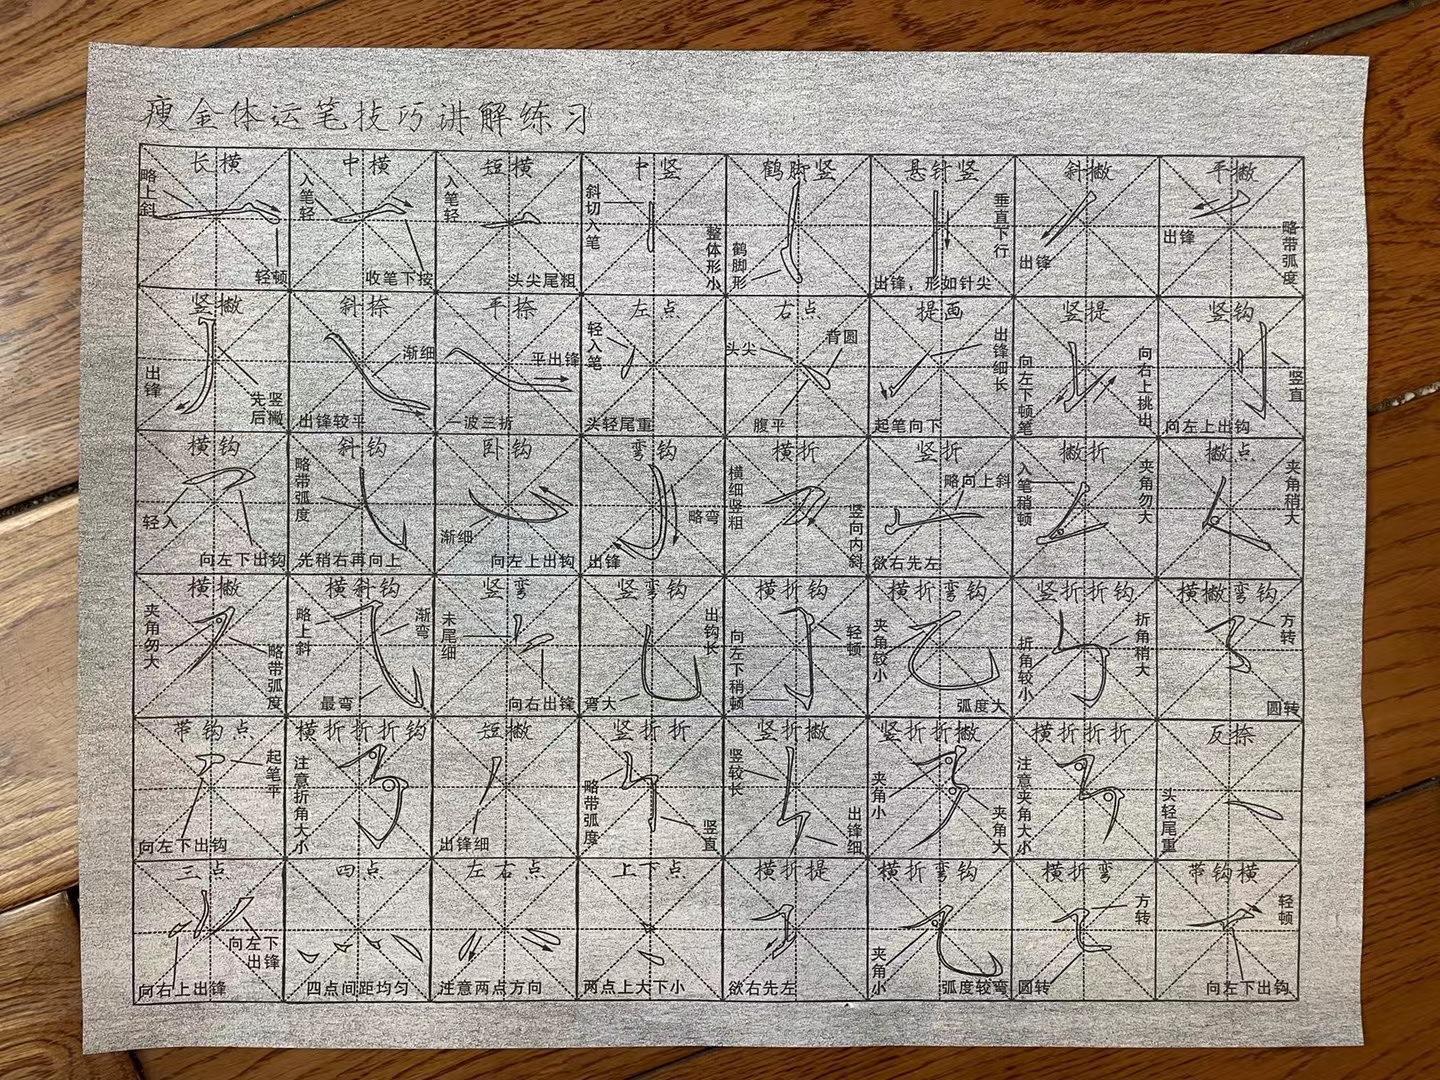 瘦金体运笔技巧讲解练习
长横
略上斜
轻顿
中横
入笔轻
收笔下按
短横
入笔轻
头尖尾粗
中竖
斜切入笔
整体形小
鹤脚竖
鹤脚形
悬针竖
垂直下行
出锋，形如针尖
斜撇
出锋
平撇
出锋
略带弧度
竖撇
出锋
先竖
后撇
斜捺
渐细
出锋较平
平捺
平出锋
一波三折
左点
轻入笔
头轻尾重
右点
头尖
背圆
腹平
提画
出锋细长
起笔向下
竖提
向左下顿笔
向右上挑出
竖钩
竖直
向左上出钩
横钩
轻入
向左下出钩
斜钩
略带弧度
先稍右再向上
卧钩
渐细
向左上出钩
弯钩
略弯
出锋
横折
横细竖粗
竖向内斜
竖折
略向上斜
欲右先左
撇折
入笔稍顿
夹角勿大
撇点
夹角稍大
横撇
夹角勿大
略带弧度
横斜钩
略上斜
渐弯
最弯
竖弯
末尾细
向右出锋
竖弯钩
出钩长
弯大
横折钩
向左下稍顿
轻顿
横折弯钩
夹角较小
弧度大
竖折折钩
折角较小
折角稍大
横撇弯钩
方转
圆转
带钩点
起笔平
向左下出钩
横折折折钩
注意折角大小
短撇
出锋细
竖折折
略带弧度
竖直
竖折撇
竖较长
出锋细
竖折折撇
夹角小
夹角大
横折折折
注意夹角大小
反捺
头轻尾重
三点
向左下
出锋
向右上出锋
四点
四点间距均匀
左右点
注意两点方向
上下点
两点上大下小
横折提
欲右先左
横折弯钩
夹角小
弧度较弯
横折弯
方转
圆转
带钩横
轻顿
向左下出钩